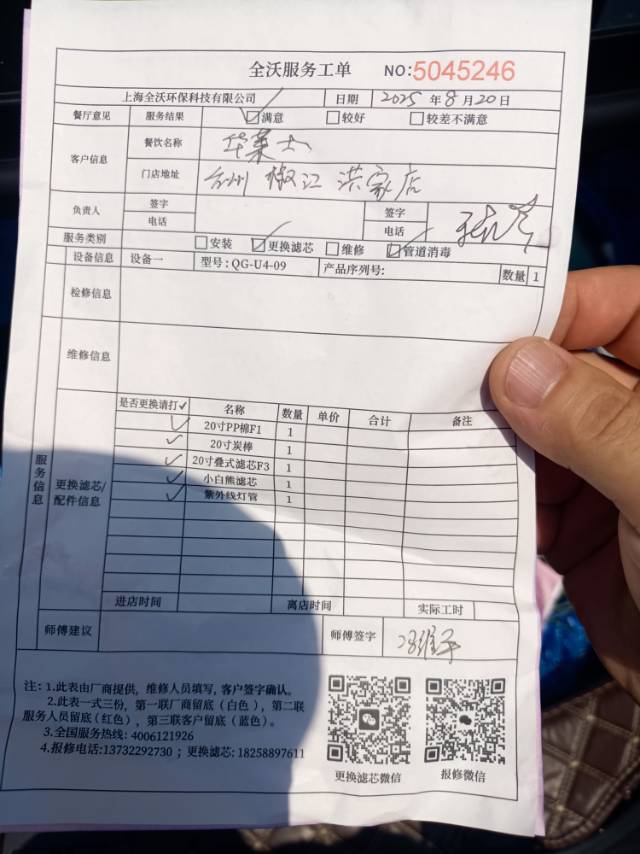 全沃服务工单 NO:5045246
上海全沃环保科技有限公司 日期 2025 年 8 月 20 日
餐厅意见 服务结果 ☑满意 □较好 □较差不满意
客户信息 餐饮名称 华莱士
门店地址 台州 椒江 洪家店
负责人 签字 签字
电话 电话
服务类别 □安装 ☑更换滤芯 □维修 ☑管道消毒
设备信息 设备一 型号:QG-U4-09 产品序列号: 数量 1
检修信息
维修信息
服务信息
更换滤芯/配件信息
是否更换请打✓ 名称 数量 单价 合计 备注
✓ 20寸PP棉F1 1
✓ 20寸炭棒 1
✓ 20寸叠式滤芯F3 1
✓ 小白熊滤芯 1
✓ 紫外线灯管 1
进店时间 离店时间 实际工时
师傅建议 师傅签字
注：1.此表由厂商提供，维修人员填写，客户签字确认。
2.此表一式三份，第一联厂商留底（白色），第二联
服务人员留底(红色)，第三联客户留底（蓝色）。
3.全国服务热线: 4006121926
4.报修电话:13732292730；更换滤芯: 18258897611
更换滤芯微信 报修微信